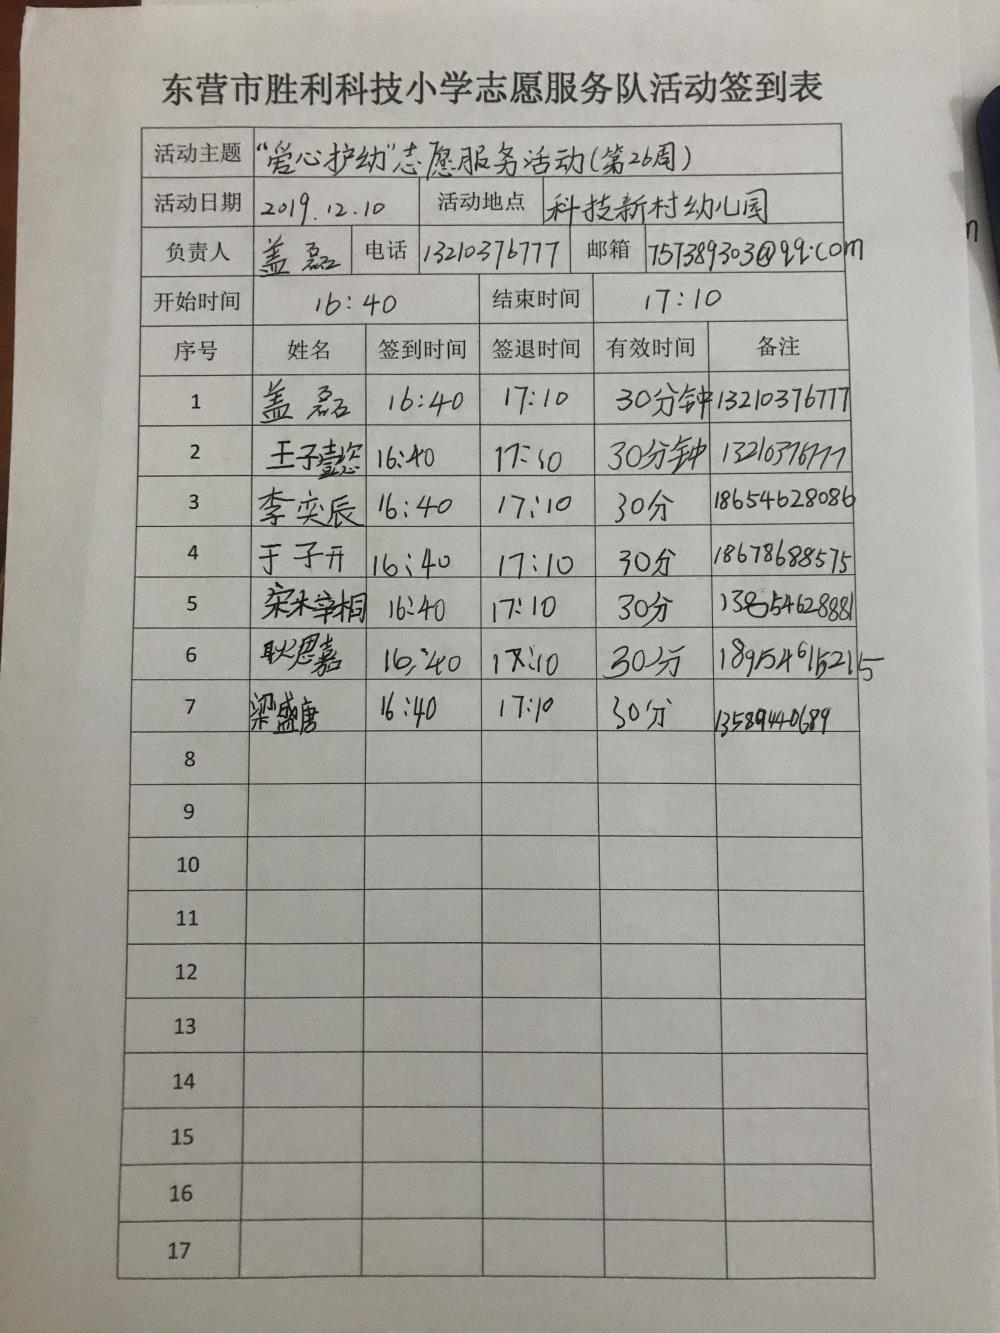 东营市胜利科技小学志愿服务队活动签到表
活动主题 “爱心护幼”志愿服务活动(第26周)
活动日期 2019.12.10 活动地点 科技新村幼儿园
负责人 盖磊 电话 13210376777 邮箱 757389303@qq.com
开始时间 16:40 结束时间 17:10
序号 姓名 签到时间 签退时间 有效时间 备注
1 盖磊 16:40 17:10 30分钟 13210376777
2 王子懿 16:40 17:10 30分钟 13210376777
3 李奕辰 16:40 17:10 30分 18654628086
4 于子开 16:40 17:10 30分 18678688575
5 宋宰相 16:40 17:10 30分
6 耿思嘉 16:40 17:10 30分 18954615215
7 梁盛唐 16:40 17:10 30分 13589440689
8
9
10
11
12
13
14
15
16
17